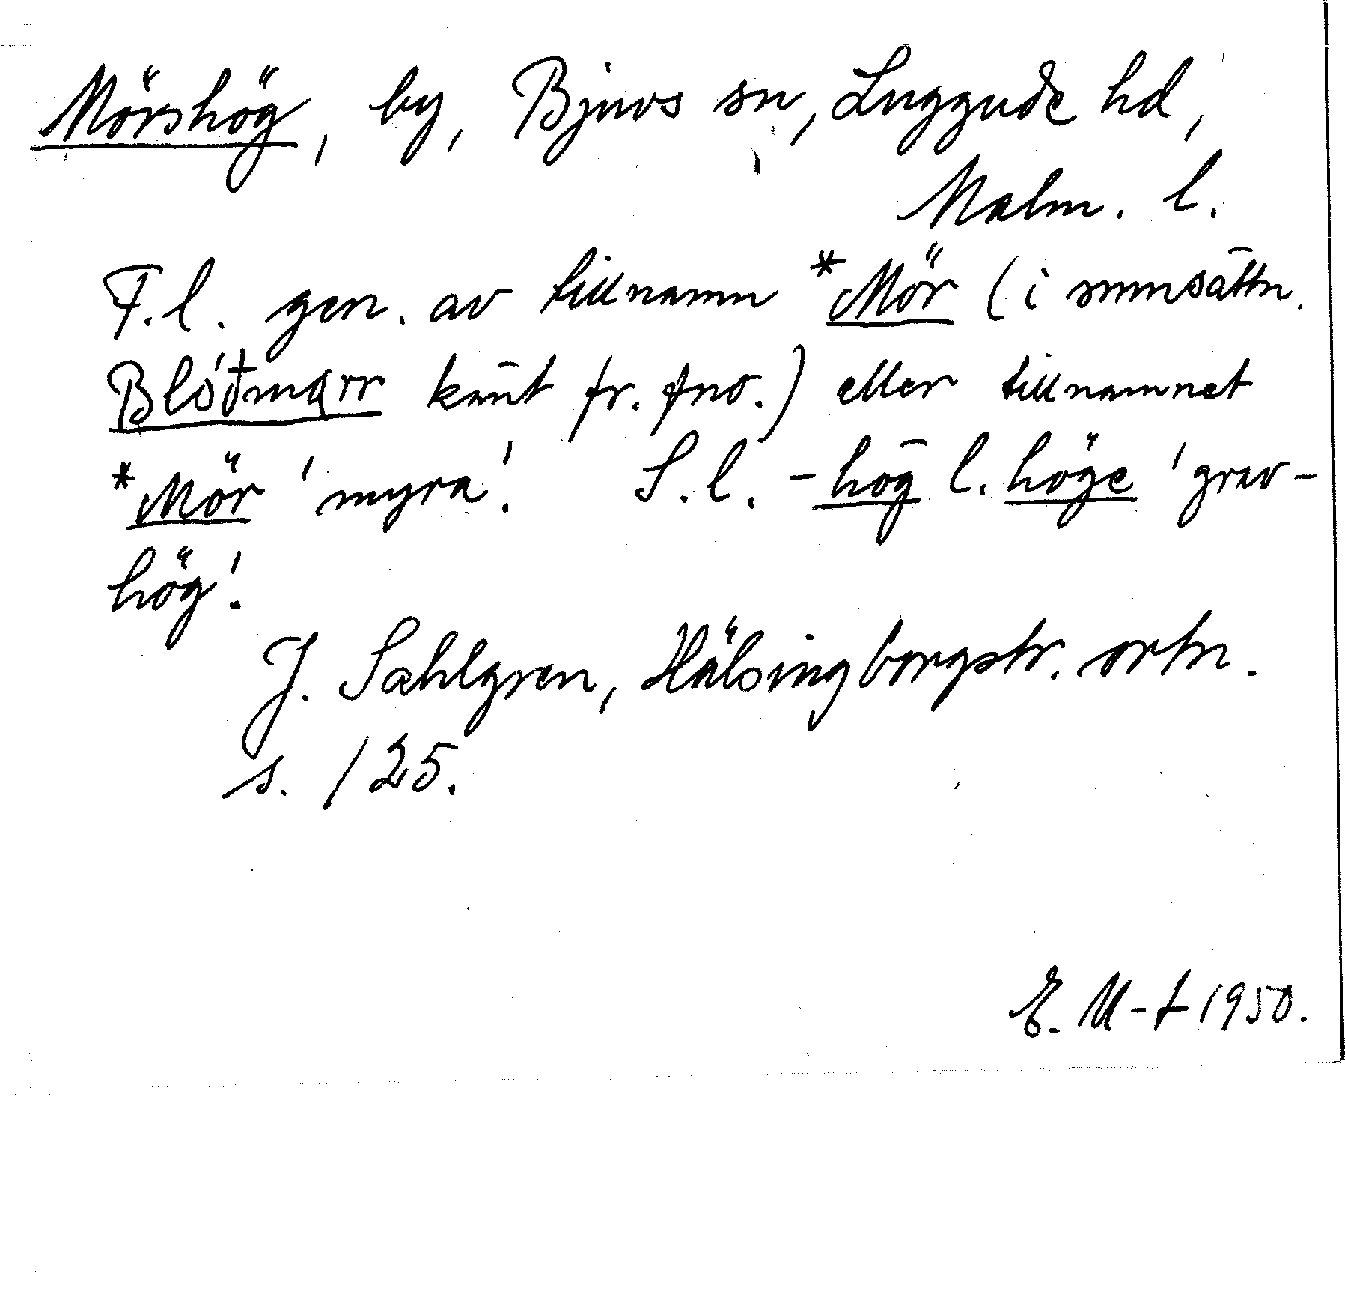 Mörshög, by, Bjuvs sn, Luggude hd,
Malm. l.
F.l. gen. av tillnamn *Mör (i smnsättn.
Blóðmǫrr känt fr. fno.) eller tillnamnet
*Mör 'myra'. S.l. -hög l. höge 'grav-
hög'.
J. Sahlgren, Hälsingborgstr. ortn.
s. 125.
E. M-t 1950.